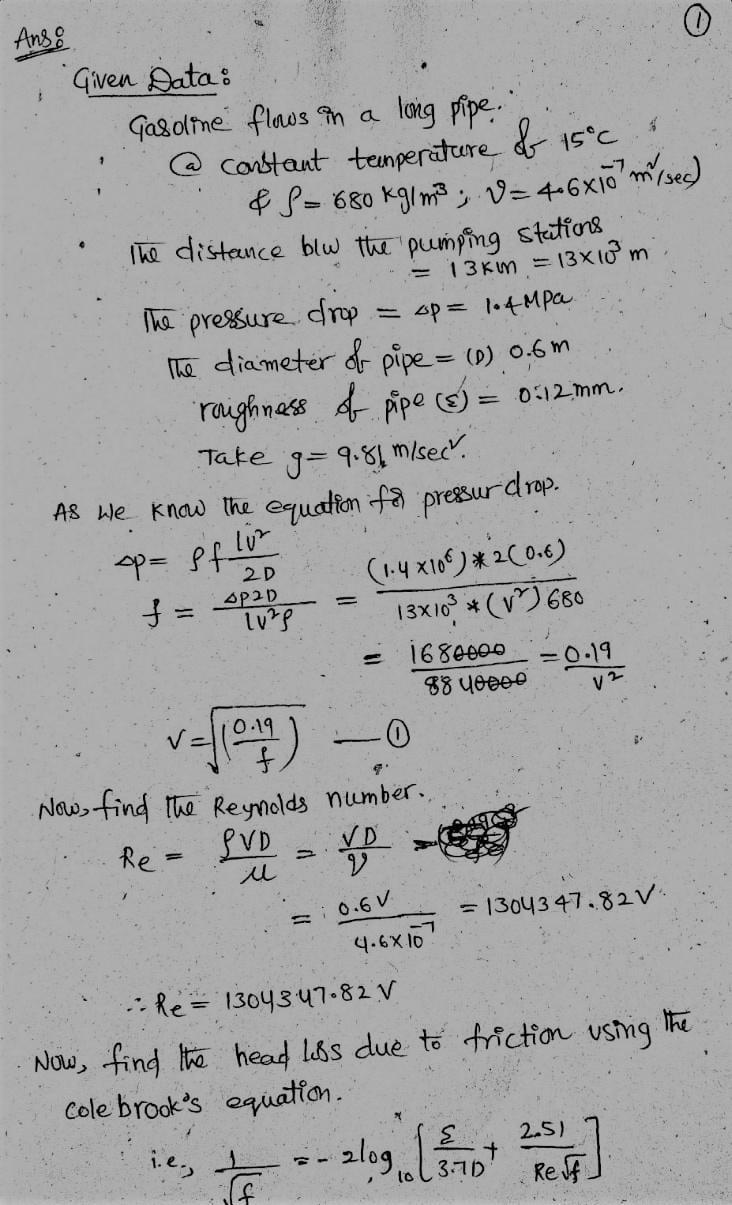 ①
Ans:
Given Data:
Gasoline flows in a long pipe.
@ constant temperature of 15°C
& ρ = 680 kg/m³ ; ν = 4.6×10⁻⁷ m²/sec)
The distance b/w the pumping stations
= 13km = 13×10³ m
The pressure drop = ΔP = 1.4MPa
The diameter of pipe = (D) 0.6m
roughness of pipe (ε) = 0.12mm.
Take g = 9.81 m/sec².
As we know the equation for pressur drop.
ΔP = ρf lv²/2D
f = ΔP2D/lv²ρ = (1.4×10⁶)*2(0.6)/13×10³*(v²)680
= 1680000/8840000 = 0.19/v²
v = √(0.19/f) —①
Now, find the Reynolds number.
Re = ρVD/μ = VD/ν =
= 0.6V/4.6×10⁻⁷ = 1304347.82V
∴ Re = 1304347.82 V
Now, find the head loss due to friction using the
Cole brook's equation.
i.e., 1/√f = -2log₁₀[ε/3.7D + 2.51/Re√f]